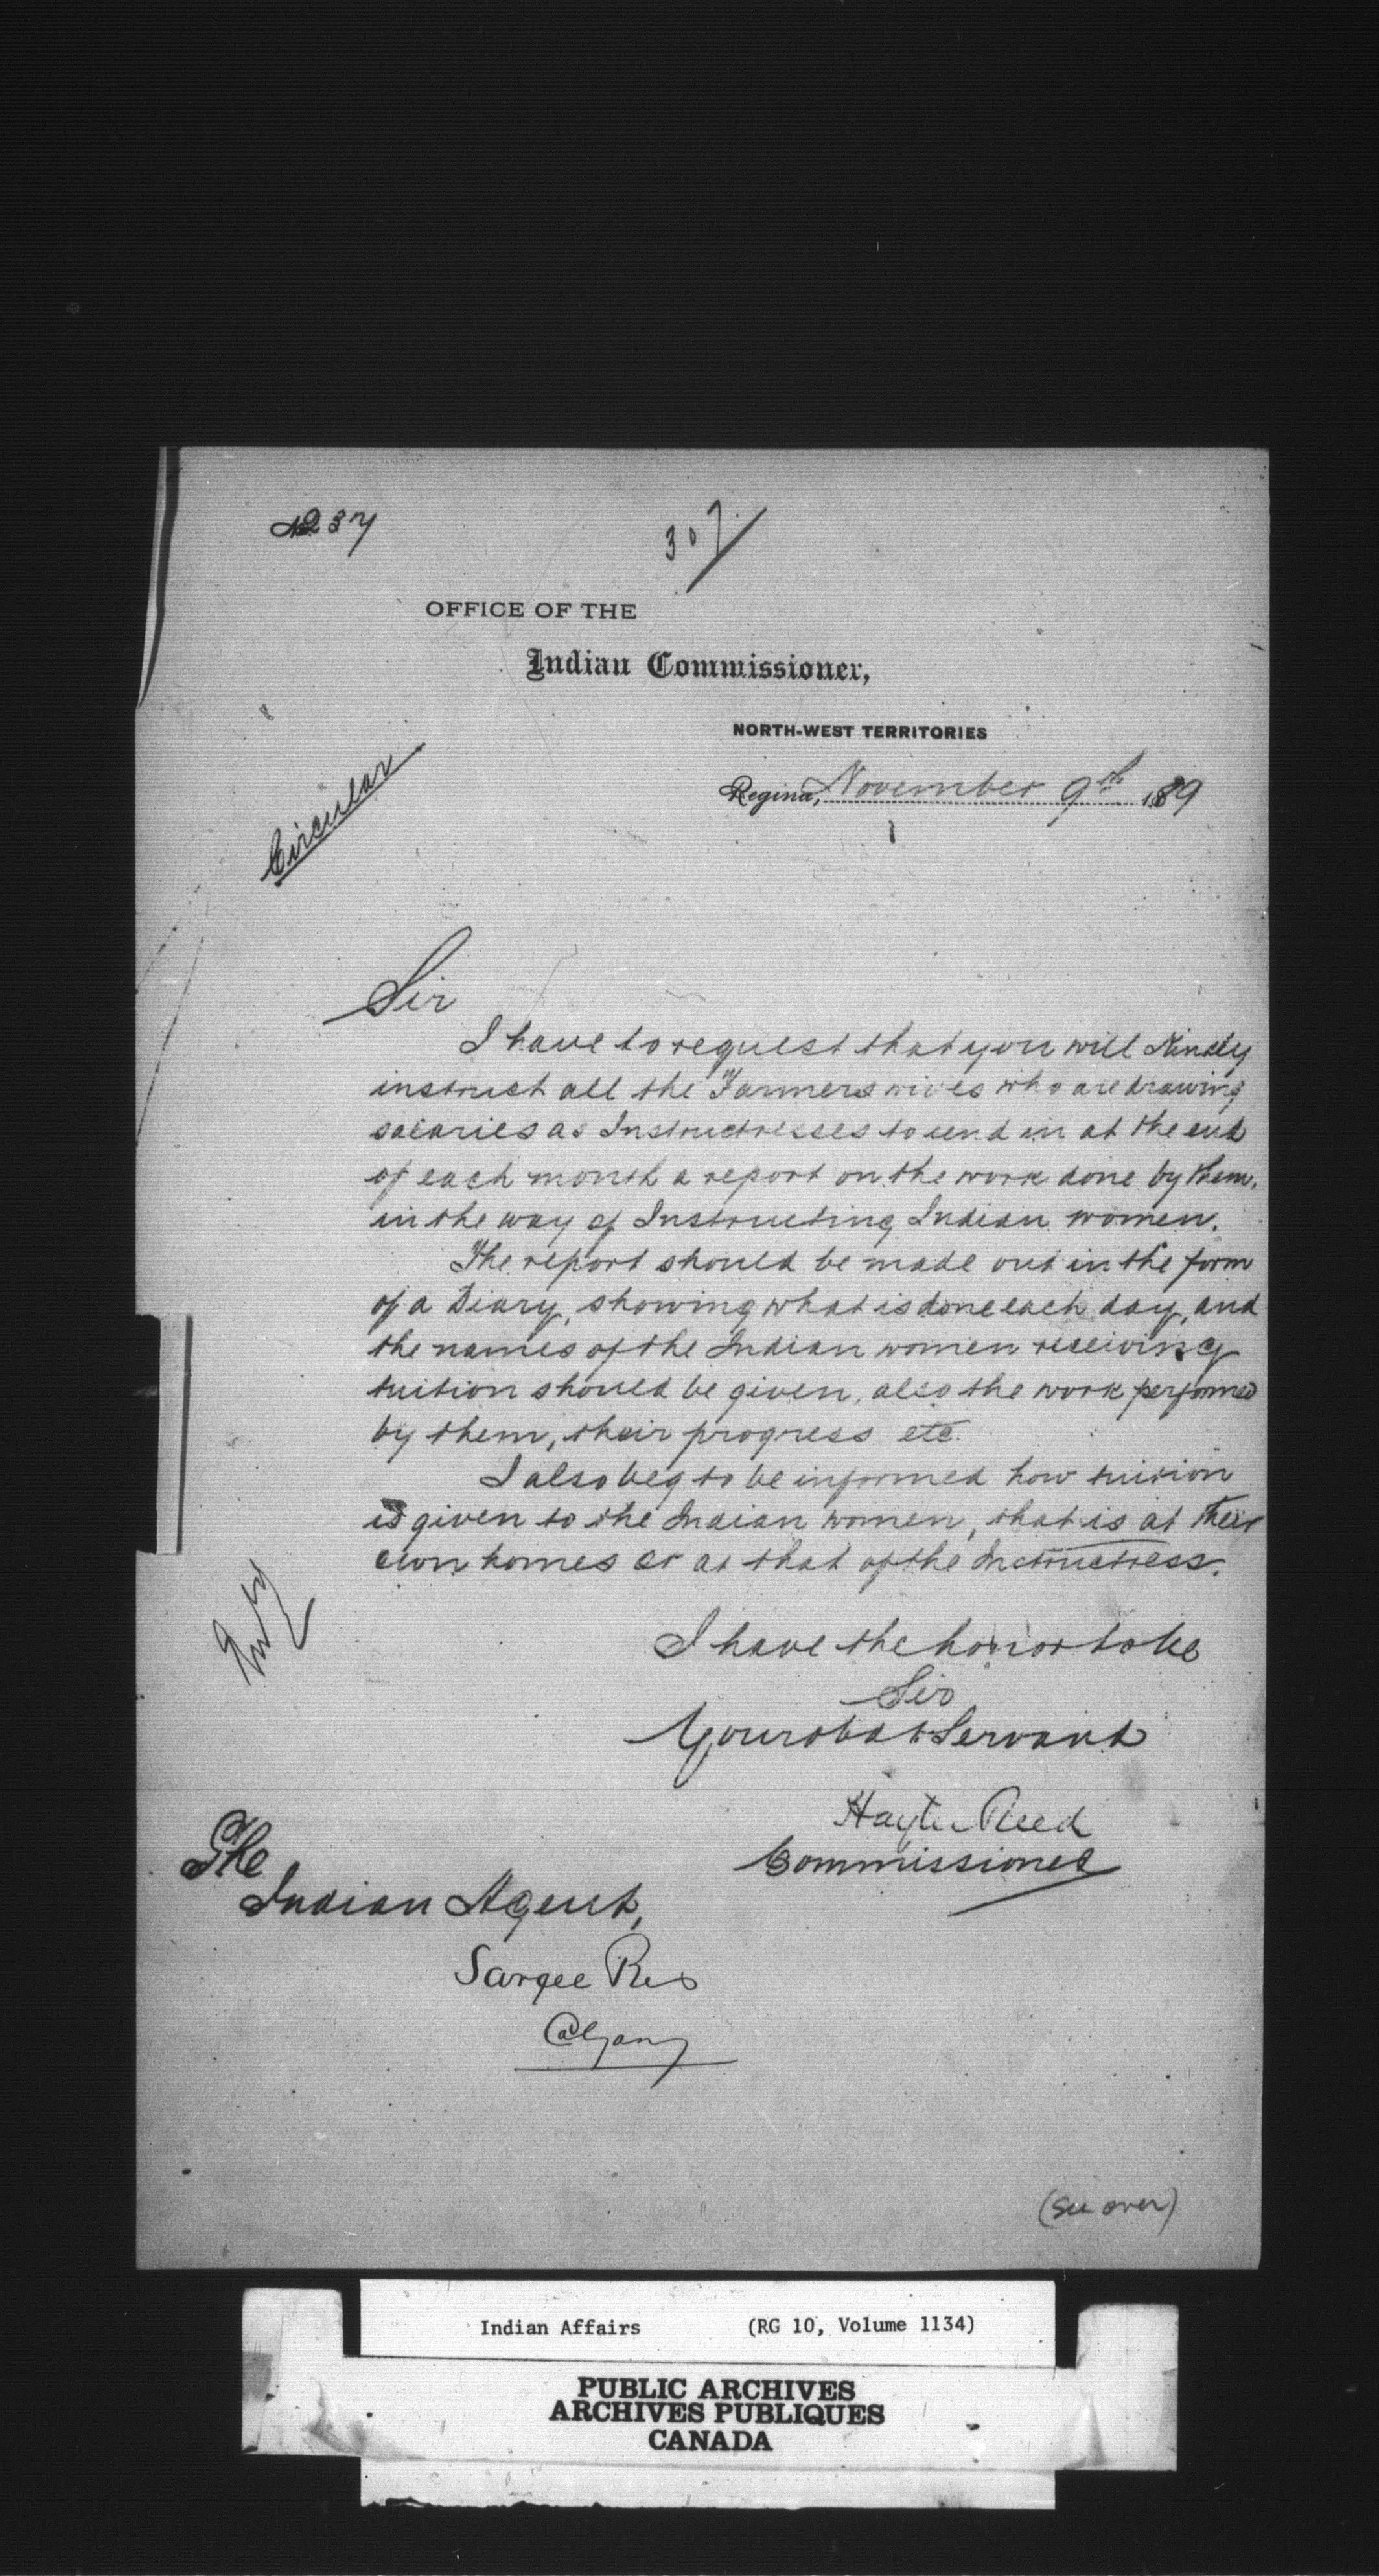 No 237
307
OFFICE OF THE
Indian Commissioner,
NORTH-WEST TERRITORIES
Regina, November 9th 1889
Circular
Sir
I have to request that you will Kindly
instruct all the Farmers wives who are drawing
salaries as Instructresses to send in at the end
of each month a report on the work done by them,
in the way of Instructing Indian women.
The report should be made out in the form
of a Diary, showing what is done each day, and
the names of the Indian women receiving
tuition should be given, also the work performed
by them, their progress etc.
I also beg to be informed how tuition
is given to the Indian women, that is at their
own homes or at that of the Instructress.
I have the honor to be
Sir
Your obdt Servant
Hayter Reed
Commissioner
The
Indian Agent,
Sarcee Res
Calgary
(See over)
Indian Affairs (RG 10, Volume 1134)
PUBLIC ARCHIVES
ARCHIVES PUBLIQUES
CANADA